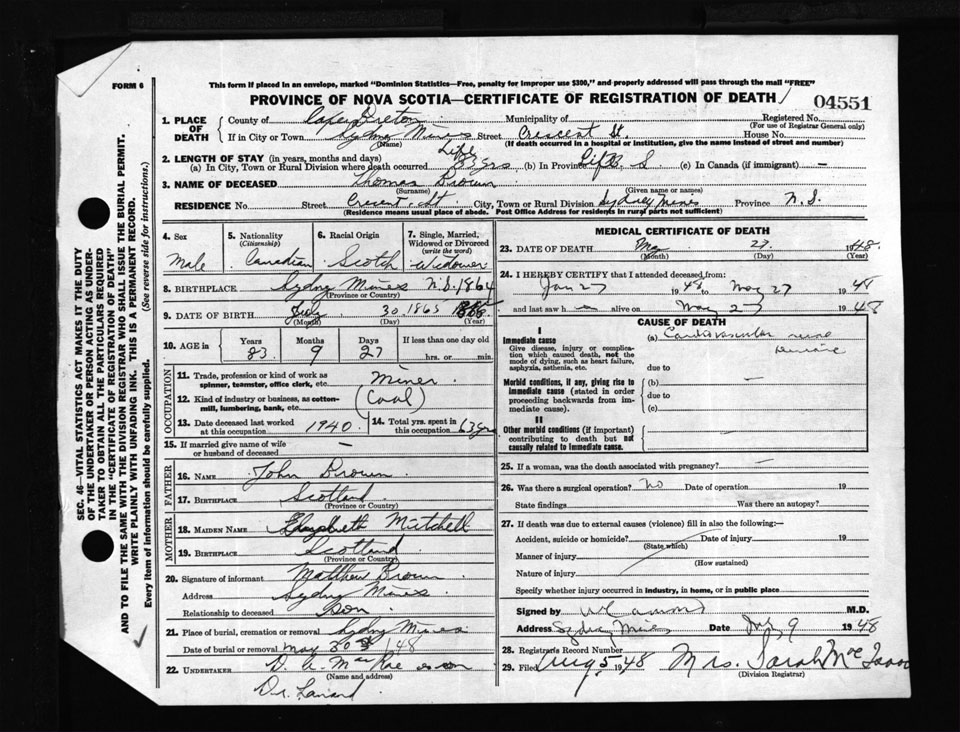 FORM 6
This form if placed in an envelope, marked "Dominion Statistics—Free, penalty for improper use $300," and properly addressed will pass through the mail "FREE"
PROVINCE OF NOVA SCOTIA—CERTIFICATE OF REGISTRATION OF DEATH
04551
1. PLACE OF DEATH
County of Cape Breton Municipality of Registered No.
(For use of Registrar General only)
If in City or Town Sydney Mines Street Crescent St. House No.
(Name) (If death occurred in a hospital or institution, give the name instead of street and number)
2. LENGTH OF STAY (in years, months and days) Life
(a) In City, Town or Rural Division where death occurred 83 yrs (b) In Province Life (c) In Canada (if immigrant) —
3. NAME OF DECEASED Thomas Brown
(Surname) (Given name or names)
RESIDENCE No. Street Crecent St City, Town or Rural Division Sydney Mines Province N.S.
(Residence means usual place of abode. Post Office Address for residents in rural parts not sufficient)
4. Sex
Male
5. Nationality
(Citizenship)
Canadian
6. Racial Origin
Scotch
7. Single, Married, Widowed or Divorced
(write the word)
Widower
8. BIRTHPLACE Sydney Mines N.S. 1864
(Province or Country)
9. DATE OF BIRTH July 30 1865
(Month) (Day) (Year)
10. AGE in Years Months Days If less than one day old
83 9 27 hrs. or min.
OCCUPATION
11. Trade, profession or kind of work as spinner, teamster, office clerk, etc. Miner
12. Kind of industry or business, as cotton-mill, lumbering, bank, etc. (Coal)
13. Date deceased last worked at this occupation 1940
14. Total yrs. spent in this occupation 63 yrs
15. If married give name of wife or husband of deceased —
FATHER
16. NAME John Brown
17. BIRTHPLACE Scotland
(Province or Country)
MOTHER
18. MAIDEN NAME Elizabeth Mitchell
19. BIRTHPLACE Scotland
(Province or Country)
20. Signature of informant Matthew Brown
Address Sydney Mines
Relationship to deceased Son
21. Place of burial, cremation or removal Sydney Mines
Date of burial or removal May 30 1948
22. UNDERTAKER D. A. MacRae & son
(Name and address)
MEDICAL CERTIFICATE OF DEATH
23. DATE OF DEATH May 27 1948
(Month) (Day) (Year)
24. I HEREBY CERTIFY that I attended deceased from:
Jan 27 1948 to May 27 1948
and last saw h alive on May 27 1948
CAUSE OF DEATH
I
Immediate cause
Give disease, injury or complication which caused death, not the mode of dying, such as heart failure, asphyxia, asthenia, etc.
(a) Cardiovascular renal
disease
due to
Morbid conditions, if any, giving rise to immediate cause (stated in order proceeding backwards from immediate cause).
(b) —
due to
(c)
II
Other morbid conditions (if important) contributing to death but not causally related to immediate cause.
25. If a woman, was the death associated with pregnancy? —
26. Was there a surgical operation? No Date of operation 19
State findings Was there an autopsy?
27. If death was due to external causes (violence) fill in also the following:—
Accident, suicide or homicide? Date of injury 19
(State which)
Manner of injury
(How sustained)
Nature of injury
Specify whether injury occurred in industry, in home, or in public place
Signed by M.D.
Address Sydney Mines Date July 9 1948
28. Registrar's Record Number
29. Filed Aug 5 1948 Mrs. Sarah MacIsaac
(Division Registrar)
SEC. 46—VITAL STATISTICS ACT MAKES IT THE DUTY
OF THE UNDERTAKER OR PERSON ACTING AS UNDER-
TAKER TO OBTAIN ALL THE PARTICULARS REQUIRED
IN THE "CERTIFICATE OF REGISTRATION OF DEATH"
AND TO FILE THE SAME WITH THE DIVISION REGISTRAR WHO SHALL ISSUE THE BURIAL PERMIT.
WRITE PLAINLY WITH UNFADING INK. THIS IS A PERMANENT RECORD.
Every item of information should be carefully supplied. (See reverse side for instructions.)